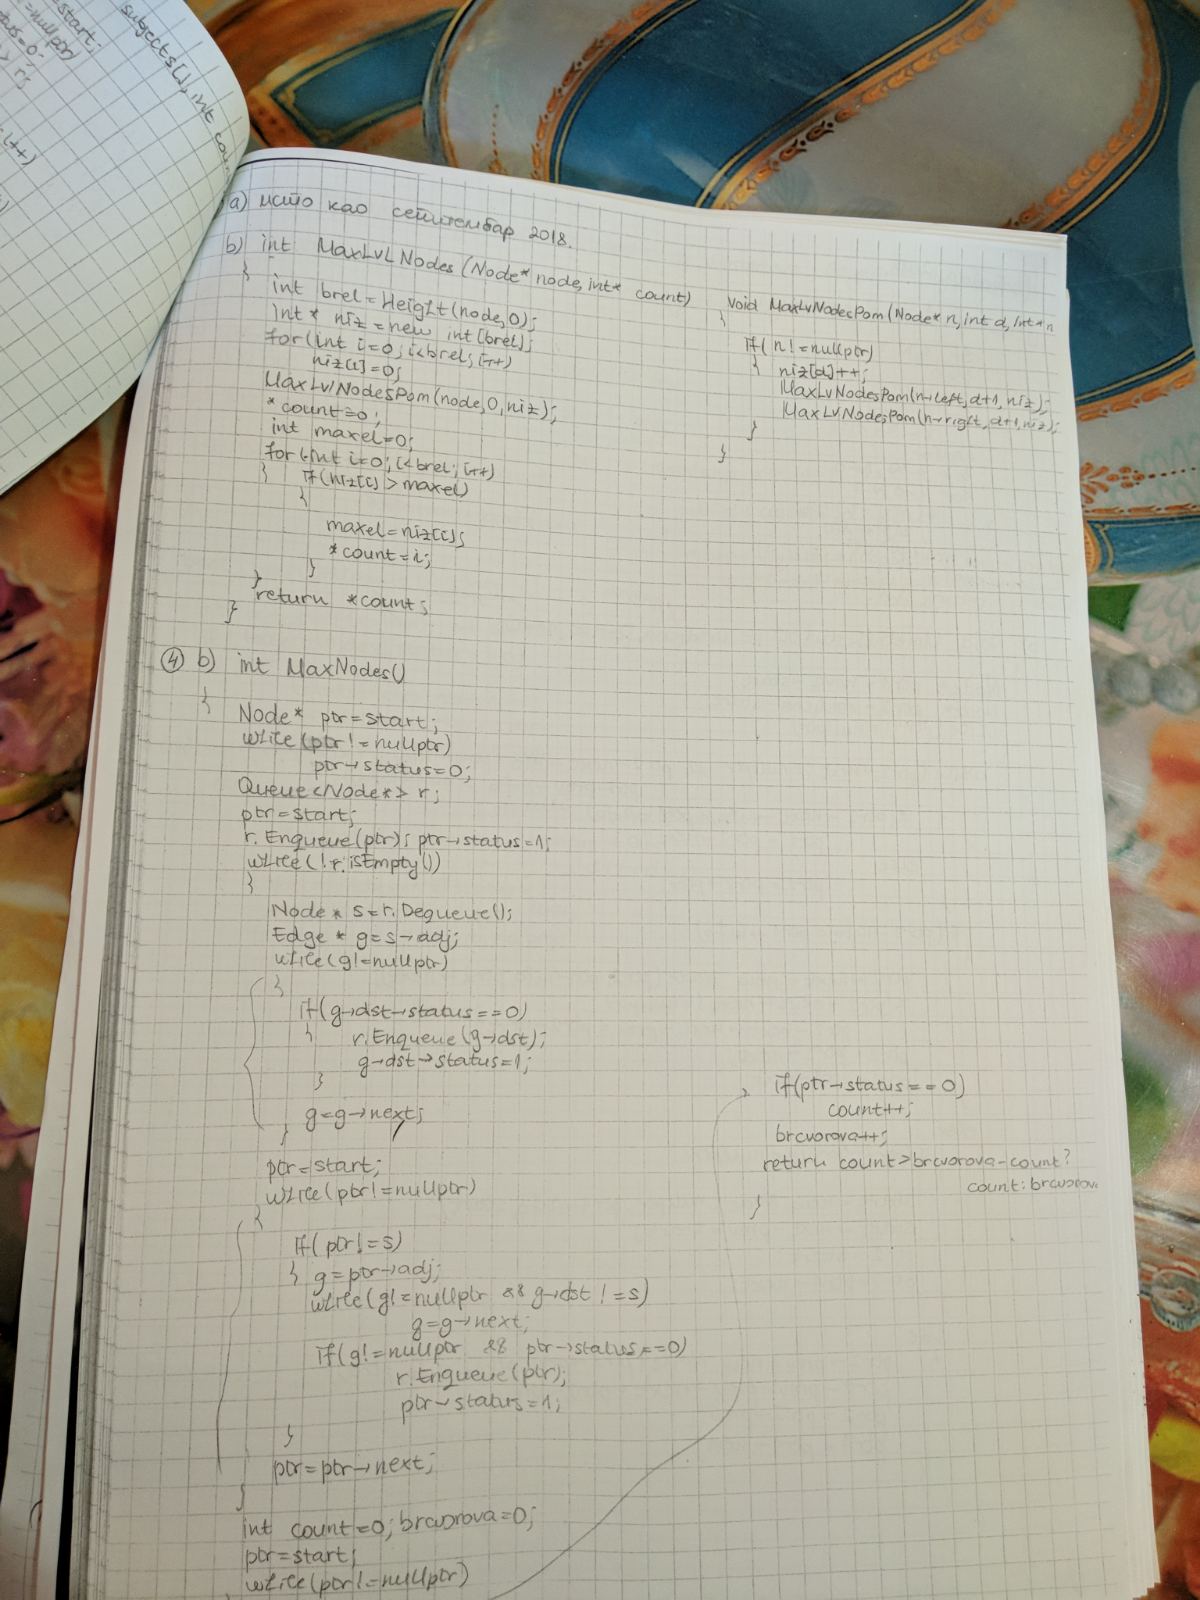 start;
=nullptr)
status=0;
r;
subjects[], int cou
i++)
a) исто као септембар 2018.
b) int MaxLvlNodes (Node* node, int* count)
{
int brel=Height(node,0);
int* niz=new int[brel];
for(int i=0; i<brel; i++)
niz[i]=0;
MaxLvlNodesPom(node,0,niz);
*count=0;
int maxel=0;
for(int i=0; i<brel; i++)
{ if(niz[i]>maxel)
{
maxel=niz[i];
*count=i;
}
}
return *count;
}
void MaxLvNodesPom(Node* n, int d, int* n
{
if(n!=nullptr)
{ niz[d]++;
MaxLvNodesPom(n→left, d+1, niz);
MaxLvNodesPom(n→right, d+1, niz);
}
}
④ b) int MaxNodes()
{
Node* ptr=start;
while(ptr!=nullptr)
ptr→status=0;
Queue<Node*> r;
ptr=start;
r.Enqueue(ptr); ptr→status=1;
while(!r.isEmpty())
{
Node* s=r.Dequeue();
Edge* g=s→adj;
while(g!=nullptr)
{
if(g→dst→status==0)
{ r.Enqueue(g→dst);
g→dst→status=1;
}
g=g→next;
}
ptr=start;
while(ptr!=nullptr)
{
if(ptr!=s)
{ g=ptr→adj;
while(g!=nullptr && g→dst!=s)
g=g→next;
if(g!=nullptr && ptr→status==0)
r.Enqueue(ptr);
ptr→status=1;
}
ptr=ptr→next;
}
int count=0; brcvorova=0;
ptr=start;
while(ptr!=nullptr)
if(ptr→status==0)
count++;
brcvorova++;
return count>brcvorova-count?
count:brcvorova
}